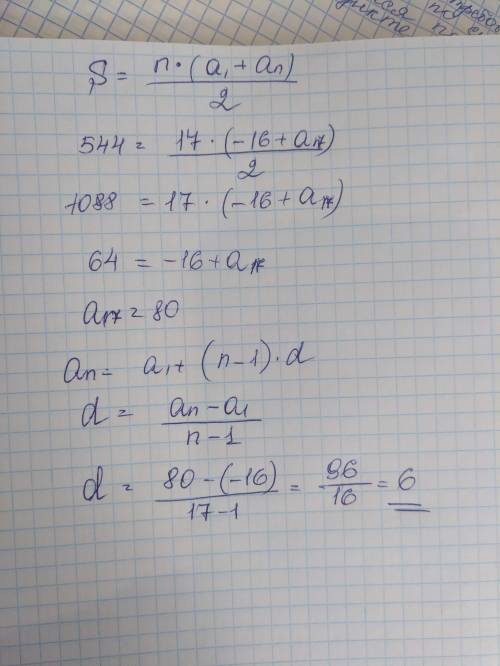 S = n·(a₁ + aₙ) / 2
544 = 17·(-16 + a₁₇) / 2
1088 = 17·(-16 + a₁₇)
64 = -16 + a₁₇
a₁₇ = 80
aₙ = a₁ + (n-1)·d
d = aₙ - a₁ / n - 1
d = 80 - (-16) / 17 - 1 = 96 / 16 = 6